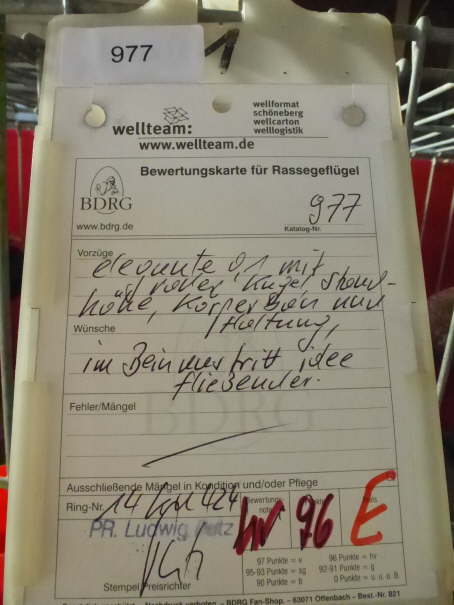 977
wellteam:
wellformat
schöneberg
wellcarton
welllogistik
www.wellteam.de
Bewertungskarte für Rassegeflügel
BDRG
www.bdrg.de
977
Katalog-Nr.
Vorzüge
elegante 0,1 mit
voller Kugel, Stand-
höhe, Körperbau und
Haltung,
Wünsche
im Beinaustritt idee
fließender.
Fehler/Mängel
BDRG
Ausschließende Mängel in Kondition und/oder Pflege
Ring-Nr. 14 424
Bewertungs-
note
hv 96 E
PR. Ludwig
97 Punkte = v 96 Punkte = hv
95-93 Punkte = sg 92-91 Punkte = g
90 Punkte = b 0 Punkte = u o B
Stempel Preisrichter
BDRG Fan-Shop. - 63071 Offenbach - Best.-Nr. 801